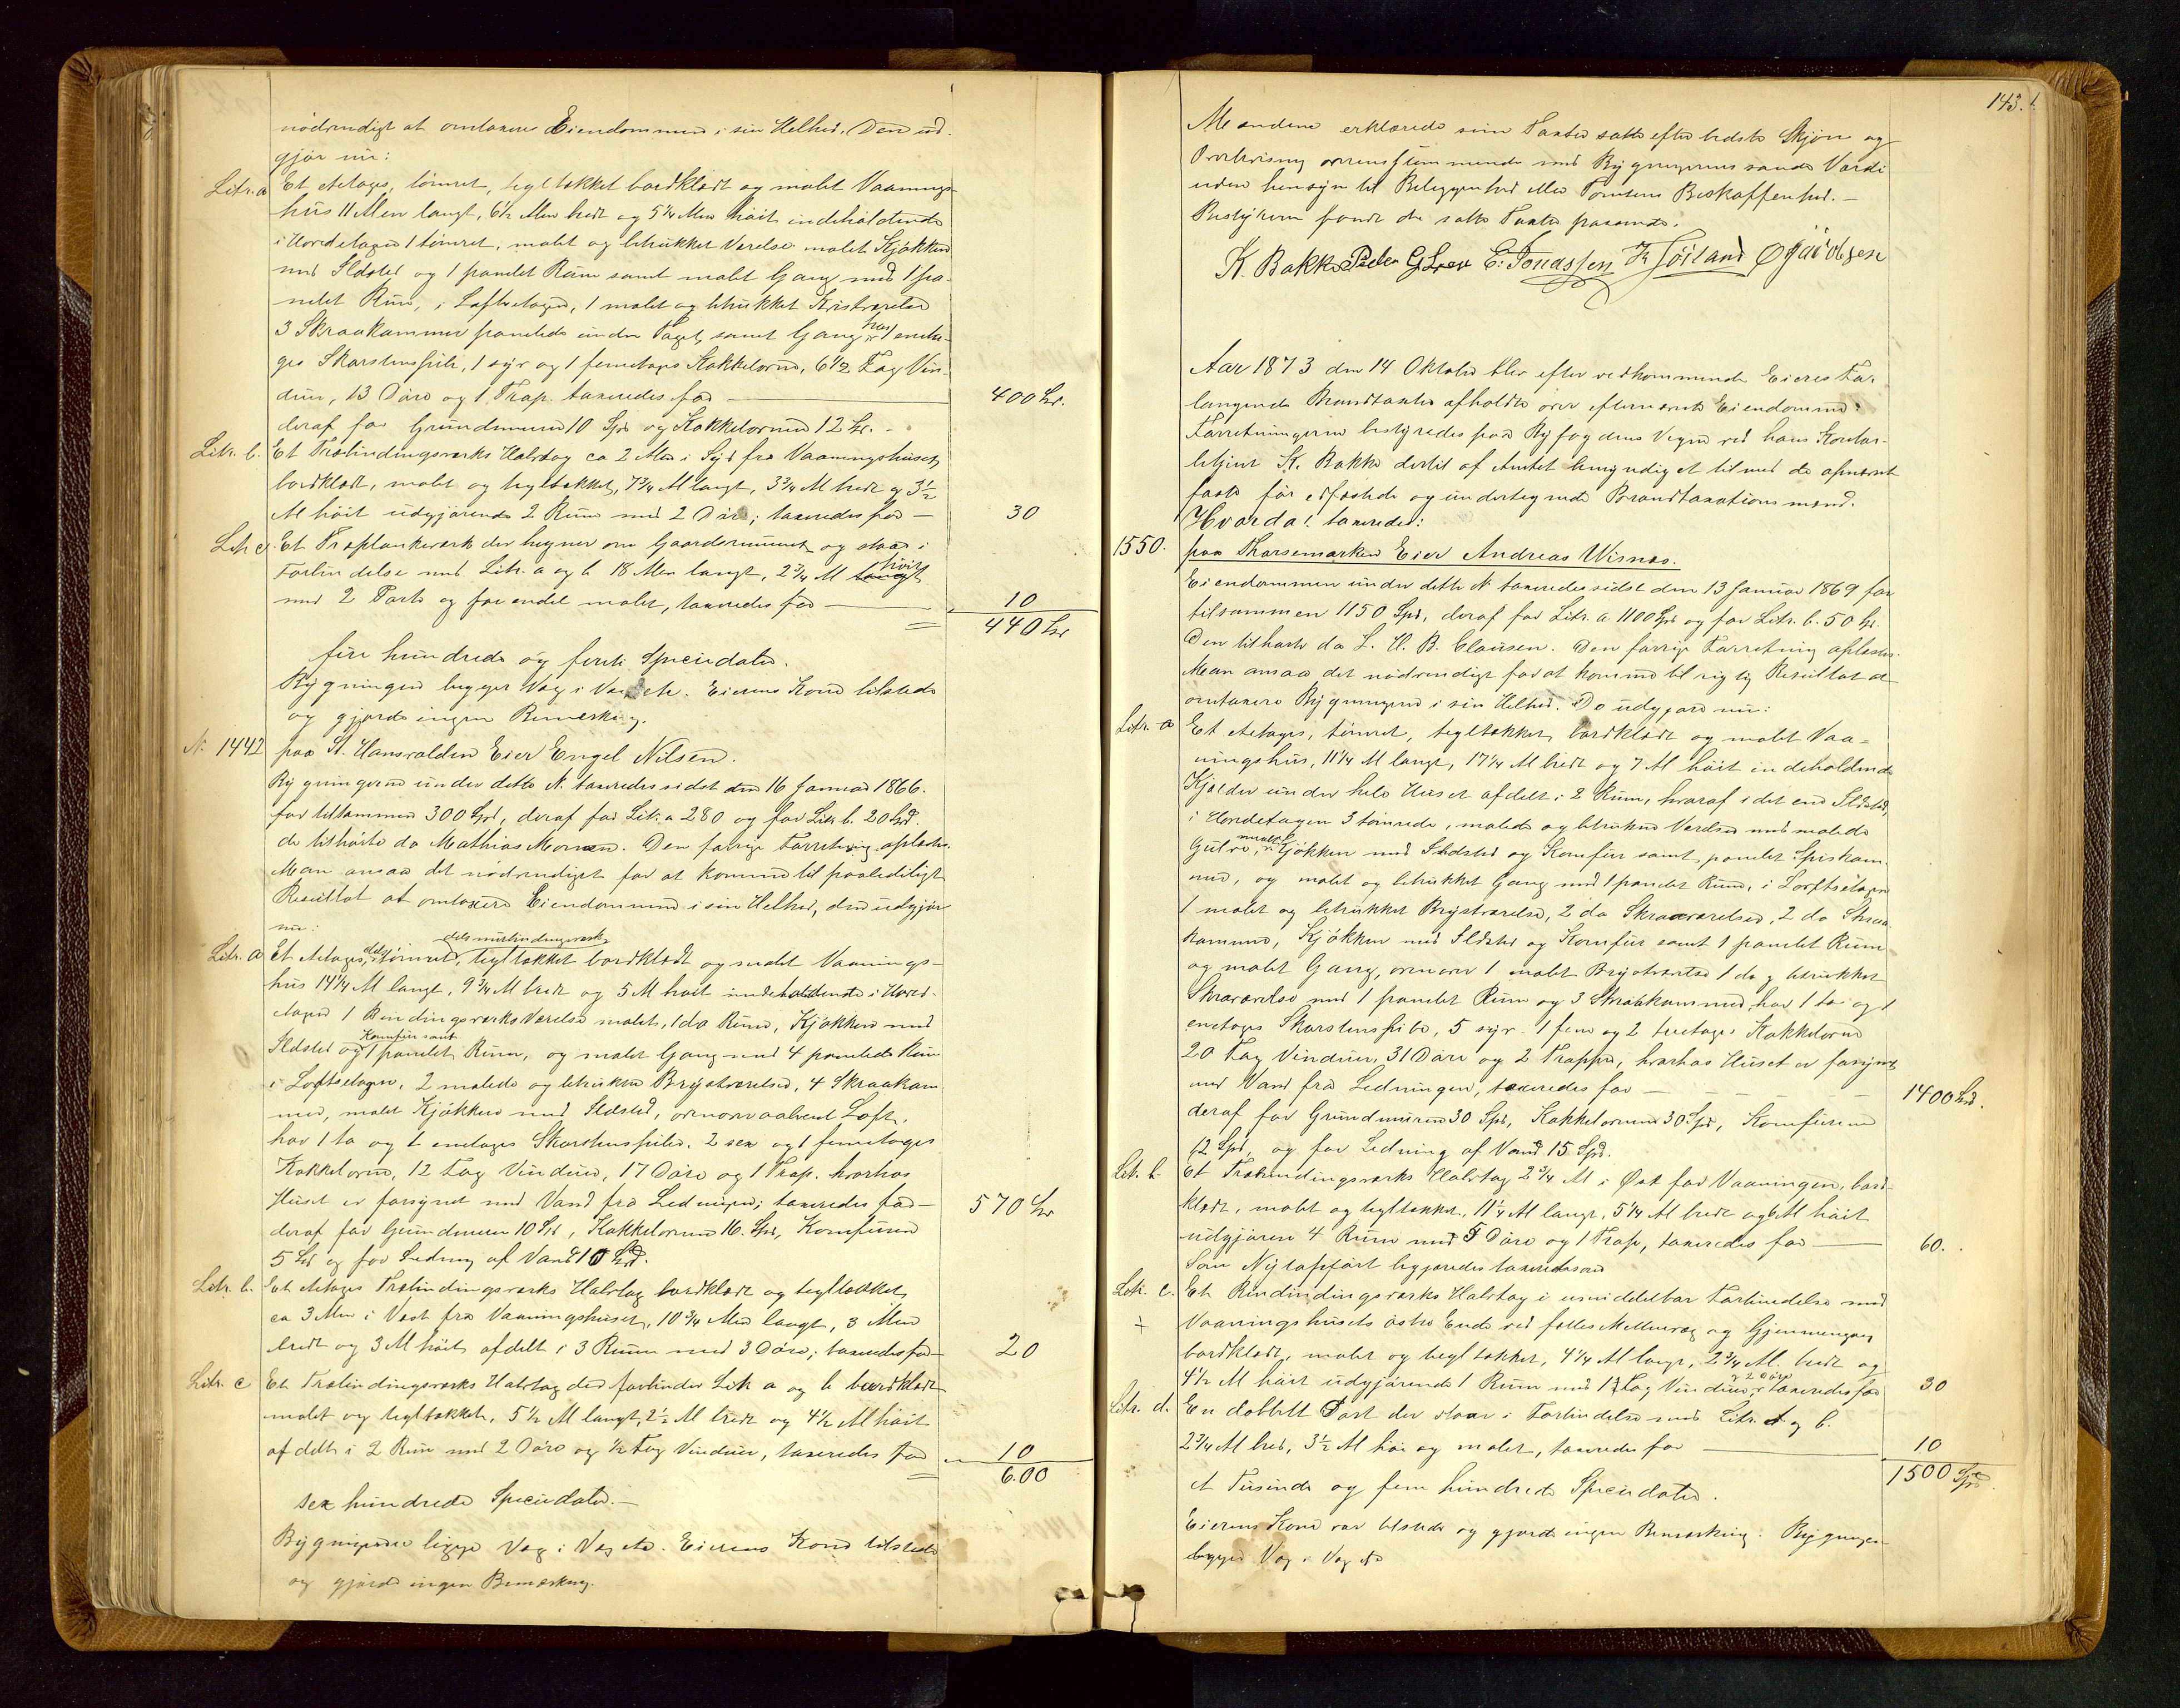 nödvendigt at omtaxere Eiendommen i sin Helhed. Den ud-
gjør nu:
Litr. a Et Etages, tömret, tegltækket bordklædt og malet Vaanings-
hus 11 Alen langt, 6½ Alen bredt og 5¼ Alen höit indeholdende
i Hovedetagen 1 tömret, malet og betrukket Værelse malet Kjökken
med Ildsted og 1 panelet Rum samt malet Gang med 1 pa-
nelet Rum, i Loftsetagen, 1 malet og betrukket Kvistværelse
3 Skraakammer panelede under Taget, samt Gang, har 1 eneta-
ges Skorstenspibe, 1 syv og 1 femetages Kakkelovne, 6½ Fag Vin-
duer, 13 Döre og 1 Trap. taxeredes for — 400 Spd.
deraf for Grundmuren 10 Spd og Kakkelovnene 12 Spd. -
Litr. b. Et Træbindingsværks Halvtag ca 2 Alen i Syd fra Vaaningshuset,
bordklædt, malet og tegltækket, 7¾ Al langt, 3¾ Al bredt og 3½
Al höit udgjörende 2 Rum med 2 Döre; taxeredes for — 30
Litr. c. Et Træplankeværk der hegner om Gaardsrummet og staar i
Forbindelse med Litr. a og b 18 Alen langt, 2¾ Al langt höit
med 2 Porte og for endel malet, taxeredes for — 10
440 Spd
fire hundrede og forti Speciedaler.
Bygningen ligger Væg i Væg etc. Eierens Kone tilstede
og gjorde ingen Bemerkning.
N. 1442 paa St. Hansvolden Eier Engel Nilsen.
Bygningerne under dette N. taxeredes sidst den 16 Januar 1866.
for tilsammen 300 Spd, deraf for Litr. a 280 og for Litr. b. 20 Spd.
de tilhørte da Mathias Monsen. Den forrige Forretning oplæstes.
Man ansaa det nödvendigst for at komme til paalideligt
Resultat at omtaxere Eiendommen i sin Helhed, den udgjör
nu:
dels murbindingsværk
Litr. a Et Etages, dels tömret, tegltækket bordklædt og malet Vaanings-
hus 14¼ Al langt, 9¾ Al bredt og 5 Al höit indeholdende i Hoved-
etagen 1 Bindingsværks Værelse malet, 1 do Rum, Kjökken med
Komfur samt
Ildsted og 1 panelet Rum, og malet Gang med 4 panelede Rum
i Loftsetagen, 2 malede og betrukne Brystværelser, 4 Skraakam-
mer, malet Kjökken med Ildsted, ovenover aabent Loft,
har 1 to og 1 enetages Skorstenspiber. 2 sex og 1 femetages
Kakkelovne, 12 Fag Vinduer, 17 Döre og 1 Trap. hvorhos
Huset er forsynet med Vand fra Ledningen; taxeredes for — 570 Spd
deraf for Grundmuren 10 Spd, Kakkelovnene 16 Spd, Komfuren
5 Spd og for Ledning af Vand 10 Spd.
Litr. b. Et Etages Træbindingsværks Halvtag bordklædt og tegltækket,
ca 3 Alen i Vest fra Vaaningshuset, 10¾ Alen langt, 3 Alen
bredt og 3 Al höit, afdelt i 3 Rum med 3 Döre; taxeredes for — 20
Litr. c Et Træbindingsværks Halvtag der forbinder Litr. a og b bordklædt
malet og tegltækket, 5½ Al langt, 2½ Al bredt og 4½ Al höit
afdelt i 2 Rum med 2 Döre og ½ Fag Vinduer, taxeredes for 10
600
sex hundrede Speciedaler. —
Bygningerne ligge Væg i Væg etc. Eierens Kone tilstede
og gjorde ingen Bemærkning.
143.
Mændene erklærede sine Taxter satte efter bedste Skjön og
Overbevisning overensstemmende med Bygningernes sande Værdi
uden hensyn til Beliggenhed eller Tomtens Beskaffenhed. —
Bestyreren fandt de satte Taxter passende.
K. Bakke Peder G. E. Jonassen Jöiland O Jacobsen
Aar 1873 den 14 Oktober blev efter vedkommende Eieres For-
langende Brandtaxter afholdte over efternævnte Eiendomme:
Forretningerne bestyredes paa Byfogdens Vegne ved hans Kontor-
betjent K. Bakke dertil af Amtet bemyndiget tilmed de opnævnte
faste för edfæstede og undertegnede Brandtaxationsmænd.
Hvorda! taxeredes:
1550. paa Skarsemarken Eier Andreas Wisnæs.
Eiendommen under dette N. taxeredes sidst den 13 Januar 1869 for
tilsammen 1150 Spd, deraf for Litr. a 1100 Spd og for Litr. b. 50 Spd.
Den tilhørte da L. H. B. Clausen. Den forrige Forretning oplæstes.
Man ansaa det nödvendigt for at komme til rigtig Resultat at
omtaxere Bygningerne i sin Helhed. De udgjøre nu:
Litr. a Et Etages, tömret, tegltækket, bordklædt og malet Vaa-
ningshus, 11¼ Al langt, 17¼ Al bredt og 7 Al höit indeholdende
Kjælder under hele Huset afdelt i 2 Rum, hvoraf i det ene Ildsted,
i Hovedetagen 3 tömrede, malede og betrukne Værelser med malede
Gulve, malet Kjökken med Ildsted og Komfur samt panelet Spiskam-
mer, og malet og betrukket Gang med 1 panelet Rum, i Loftsetagen
1 malet og betrukket Brystværelse, 2 do Skraaværelser, 2 do Skraa-
kammer, Kjökken med Ildsted og Komfur samt 1 panelet Rum
og malet Gang, ovenover 1 malet Brystværelse 1 do og betrukket
Skraaværelse med 1 panelet Rum og 3 Skraakammer, har 1 to og 1
enetages Skorstenspibe, 5 syv- 1 fem og 2 treetages Kakkelovne
20 Fag Vinduer, 31 Döre og 2 Trapper, hvorhos Huset er forsynet
med Vand fra Ledningen, taxeredes for — 1400 Spd.
deraf for Grundmuren 30 Spd, Kakkelovnene 30 Spd, Komfurene
12 Spd, og for Ledning af Vand 15 Spd.
Litr. b. Et Træbindingsværks Halvtag 2¾ Al i Öst for Vaaningen, bord-
klædt, malet og tegltækket, 11¼ Al langt, 5¼ Al bredt og 6 Al höit
udgjörende 4 Rum med 5 Döre og 1 Trap, taxeredes for — 60.
Som Nytopført
Litr. c. Et Bindingsværks Halvtag i umiddelbar Forbindelse med
+ Vaaningshusets östre Ende ved fælles Mellemvæg og Gjennemgang
bordklædt, malet og tegltækket, 4¼ Al langt, 2¾ Al. bredt og
og 2 Döre
4½ M höit udgjörende 1 Rum med 1½ Fag Vinduer, taxeredes for 30
Litr. d. En dobbelt Port der staar i Forbindelse med Litr. a og b.
2¾ Al bred, 3½ Al höi og malet, taxeredes for — 10
1500 Spd.
et Tusinde og fem hundrede Speciedaler.
Eierens Kone var tilstede og gjorde ingen Bemærkning. Bygningen
ligger Væg i Væg etc